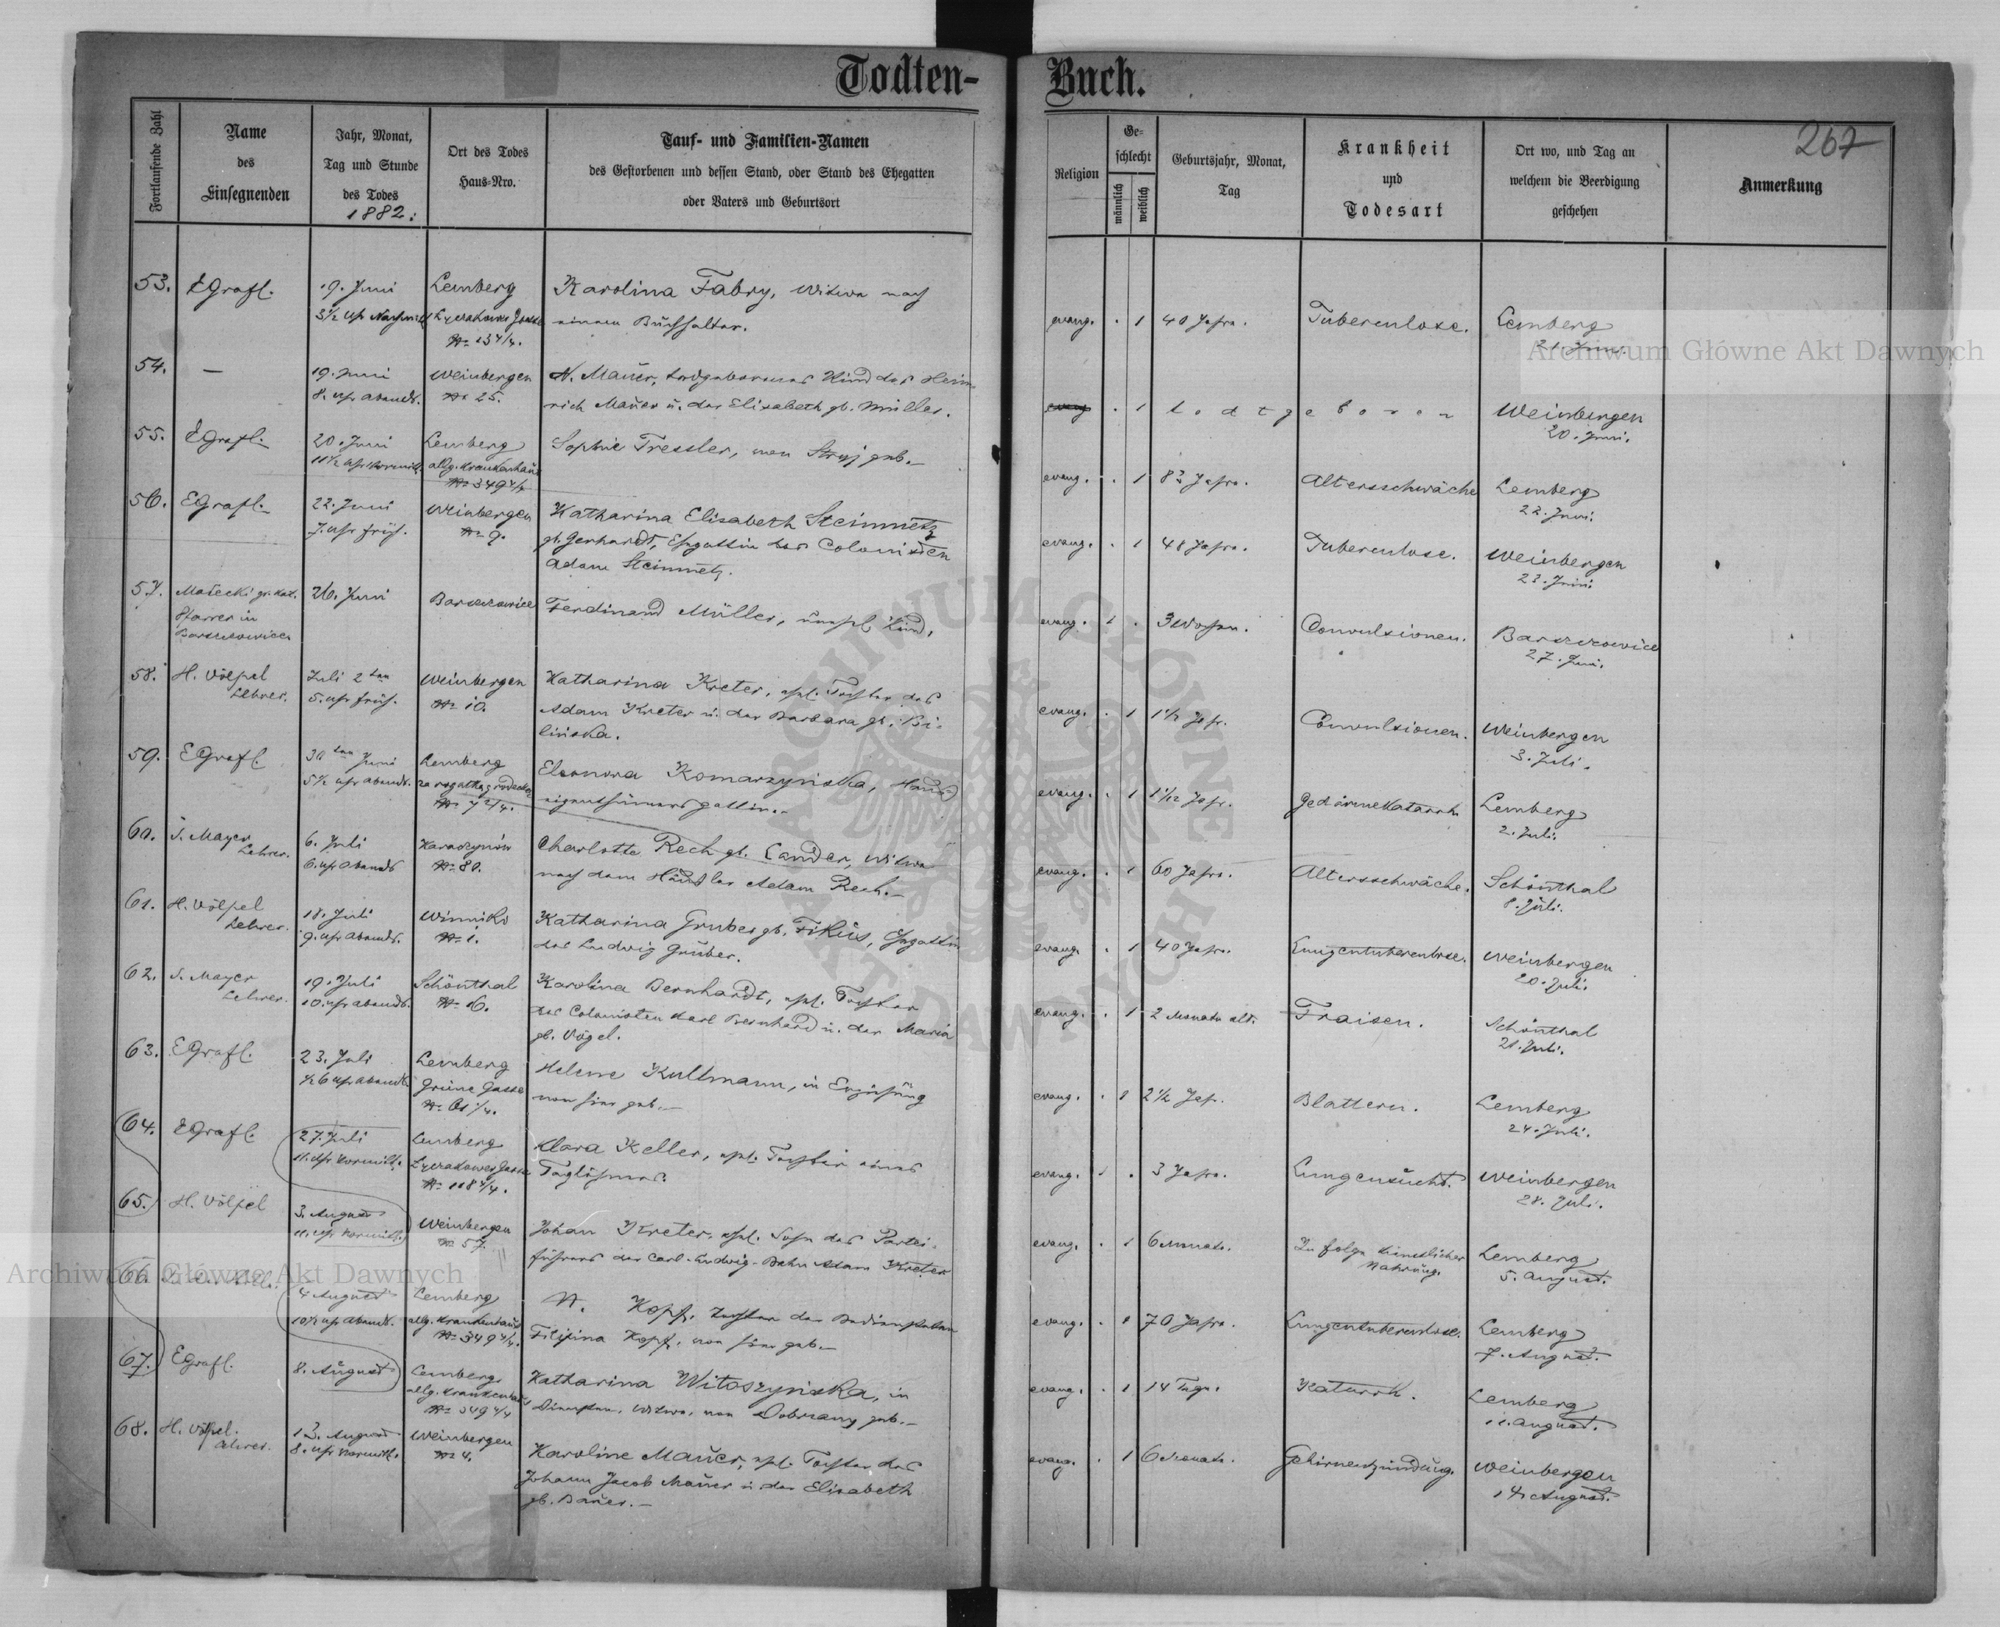 Todten-Buch.
267
Fortlaufende Zahl
Name
des
Einsegnenden
Jahr, Monat,
Tag und Stunde
des Todes
1882.
Ort des Todes
Haus-Nro.
Tauf- und Familien-Namen
des Gestorbenen und dessen Stand, oder Stand des Ehegatten
oder Vaters und Geburtsort
Religion
Ge-
schlecht
männlich
weiblich
Geburtsjahr, Monat,
Tag
Krankheit
und
Todesart
Ort wo, und Tag an
welchem die Beerdigung
geschehen
Anmerkung
53. EGrafl. 19. Juni Lemberg Karolina Fabry, Witwe nach
3½ Uhr Nachmit einem Buchhalter.
evang. 1 40 Jahre. Tuberculose. Lemberg
21. Juni.
54. — 19. Juni Weinbergen N. Mauer, todtgeborenes Kind des Hein-
8. Uhr Abends. No 25. rich Mauer u. der Elisabeth gb. Müller.
1 todtgeboren Weinbergen
20. Juni.
55. EGrafl. 20. Juni Lemberg Sophie Tressler, von Stryj geb.
11½ Uhr Vormitt. allg. Krankenhaus
evang. 1 82 Jahre. Altersschwäche Lemberg
22. Juni.
56. EGrafl. 22. Juni Weinbergen Katharina Elisabeth Steinmetz
7. Uhr früh. No 9. gb. Gerhardt, Ehegattin des Colonisten
Adam Steinmetz.
evang. 1 48 Jahre. Tuberculose. Weinbergen
23. Juni.
57. Małecki gr. kat. 26. Juni Barszczowice Ferdinand Müller, unehl. Kind.
Pfarrer in
Barszczowice
evang. 1 3 Wochen. Convulsionen. Barszczowice
27. Juni.
58. H. Völpel Juli 2ten Weinbergen Katharina Kreter, ehl. Tochter des
Lehrer. 5. Uhr früh. No 10. Adam Kreter u. der Barbara gb. Bi-
lińska.
evang. 1 1½ Jahr. Convulsionen. Weinbergen
3. Juli.
59. EGrafl. 30ten Juni Lemberg Eleonora Komarzyńska, Haus
5½ Uhr Abends. eigenthümersgattin.
evang. 1 Gedärmekatarrh. Lemberg
2. Juli.
60. J. Mayer 6. Juli Karaczynów Charlotte Rech gb. Cander, Witwe
Lehrer. 6. Uhr Abends No 80. nach dem Häusler Adam Rech.
evang. 1 60 Jahre. Altersschwäche. Schönthal
8. Juli.
61. H. Völpel 18. Juli Winniki Katharina Gruber gb. Fikus, Ehegattin
Lehrer. 9. Uhr Abends. No 1. des Ludwig Gruber.
evang. 1 40 Jahre. Lungentuberculose. Weinbergen
20. Juli.
62. J. Mayer 19. Juli Schönthal Karolina Bernhardt, ehl. Tochter
Lehrer. 10. Uhr Abends. No 16. des Colonisten Karl Bernhard u. der Maria
gb. Vögel.
evang. 1 2 Monate alt. Fraisen. Schönthal
21. Juli.
63. EGrafl. 23. Juli Lemberg Helene Kullmann, in Erziehung
½6 Uhr Abends Grüne Gasse von hier geb.
evang. 1 2½ Jahr. Blattern. Lemberg
24. Juli.
64. EGrafl. 27. Juli Lemberg Clara Keller, ehl. Tochter eines
11. Uhr Vormitt. Lyczakower Gasse Taglöhners.
No 118 4/4.
evang. 1 3 Jahre. Lungensucht. Weinbergen
28. Juli.
65. H. Völpel 3. August Weinbergen Johan Kreter, ehl. Sohn des Partei-
11. Uhr Vormitt. No 57. führers der Carl-Ludwig-Bahn Adam Kreter
evang. 1 6 Monate. In folge künstlicher Lemberg
Nahrung. 5. August.
66. 4 August Lemberg N. Kopf, Tochter der Bediensteten
10½ Uhr Abends. allg. Krankenhaus Filipina Kopf, von hier geb.
No 349 4/4.
evang. 1 70 Jahre. Lungentuberculose. Lemberg
7. August.
67. EGrafl. 8. August Lemberg Katharina Witoszyńska, in
allg. Krankenhaus Diensten, Witwe, von Dobrzany geb.
No 349 4/4
evang. 1 14 Tage. Katarrh. Lemberg
11. August.
68. H. Völpel. 13. August Weinbergen Karoline Mauer, ehl. Tochter des
Lehrer. 8. Uhr Vormitt. No 4. Johann Jacob Mauer u. der Elisabeth
gb. Bauer.
evang. 1 6 Monate. Gehirnentzündung. Weinbergen
14. August.
Archiwum Główne Akt Dawnych
Archiwum Główne Akt Dawnych
ARCHIWUM GŁÓWNE AKT DAWNYCH